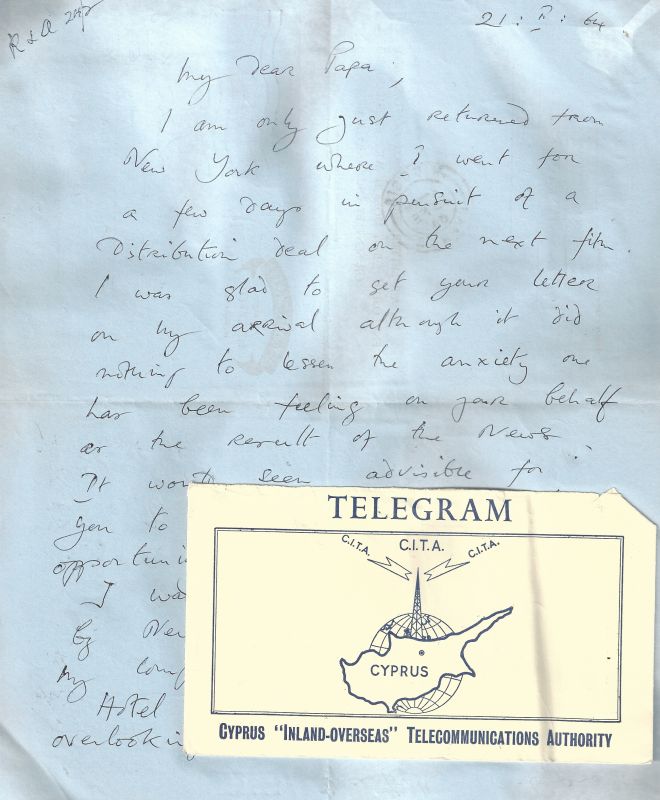 21 : II : 64
My Dear Papa,
I am only just returned from
New York where I went for
a few days in pursuit of a
Distribution deal on the next film.
I was glad to get your letter
on my arrival although it did
nothing to lessen the anxiety one
has been feeling on your behalf
as the result of the News.
It won't seem advisible for
you to
opportuni
I wa
by New
my comp
Hotel
overlooking
TELEGRAM
C.I.T.A. C.I.T.A. C.I.T.A.
CYPRUS
CYPRUS "INLAND-OVERSEAS" TELECOMMUNICATIONS AUTHORITY